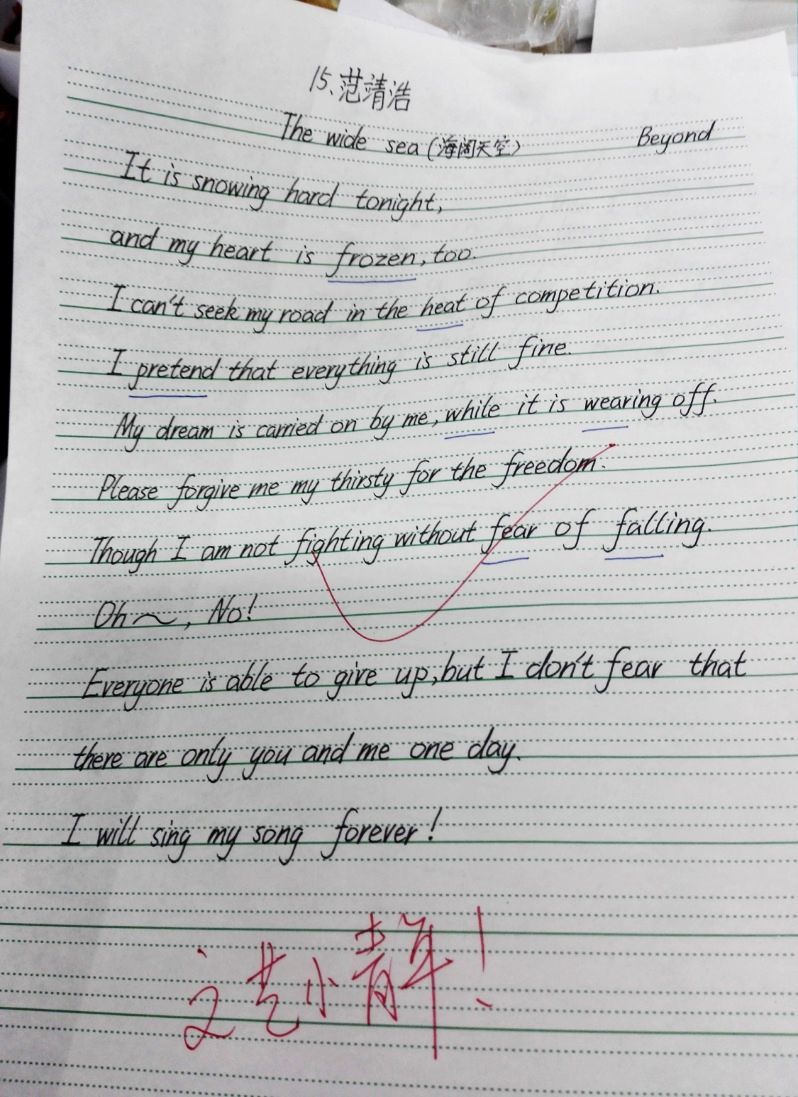 15、范靖浩
The wide sea (海阔天空) Beyond
It is snowing hard tonight,
and my heart is frozen, too.
I can't seek my road in the heat of competition.
I pretend that everything is still fine.
My dream is carried on by me, while it is wearing off.
Please forgive me my thirsty for the freedom.
Though I am not fighting without fear of falling.
Oh～, No!
Everyone is able to give up, but I don't fear that
there are only you and me one day.
I will sing my song forever!
文艺小青年!